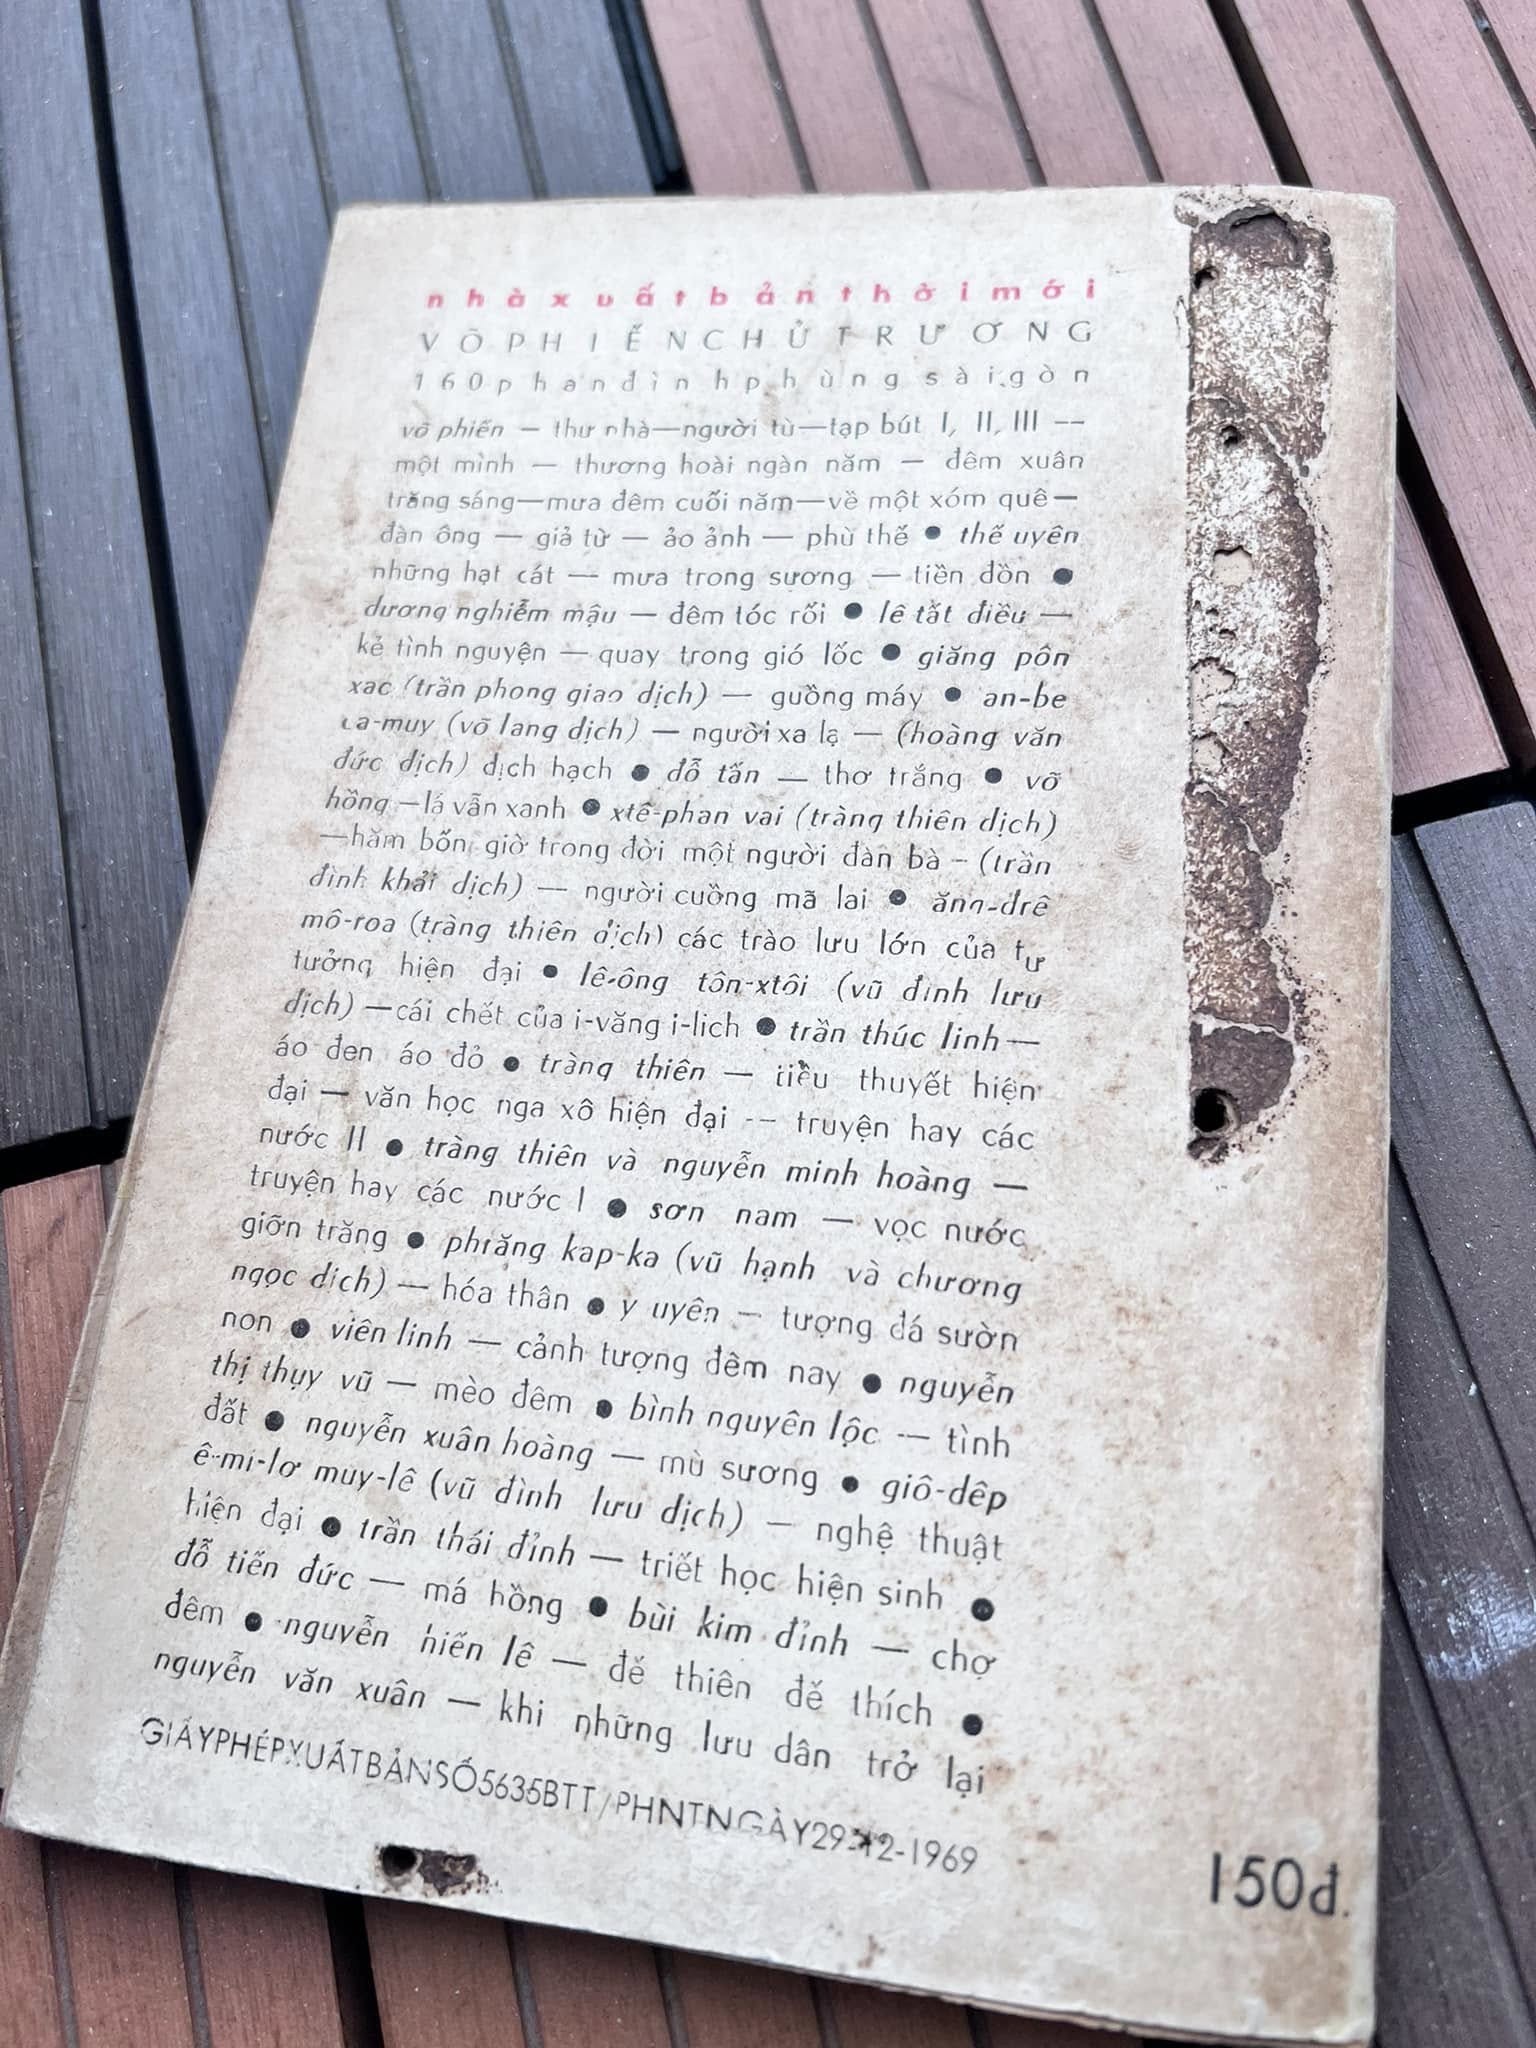 nhàxuấtbảnthờimới
VÕPHIẾNCHỦTRƯƠNG
160phanđìnhphùngsàigòn
võ phiến — thư nhà—người tù—tạp bút I, II, III —
một mình — thương hoài ngàn năm — đêm xuân
trăng sáng—mưa đêm cuối năm—về một xóm quê—
đàn ông — giả từ — ảo ảnh — phù thế ● thế uyên
những hạt cát — mưa trong sương — tiền đồn ●
dương nghiễm mậu — đêm tóc rối ● lê tất điều —
kẻ tình nguyện — quay trong gió lốc ● giăng pôn
xac (trần phong giao dịch) — guồng máy ● an-be
ca-muy (võ lang dịch) — người xa lạ — (hoàng văn
đức dịch) dịch hạch ● đỗ tấn — thơ trắng ● võ
hồng —lá vẫn xanh ● xtê-phan vai (tràng thiên dịch)
—hăm bốn giờ trong đời một người đàn bà - (trần
đinh khải dịch) — người cuồng mã lai ● ăng-đrê
mô-roa (tràng thiên dịch) các trào lưu lớn của tư
tưởng hiện đại ● lê-ông tôn-xtôi (vũ đình lưu
dịch) —cái chết của i-văng i-lich ● trần thúc linh—
áo đen áo đỏ ● tràng thiên — tiểu thuyết hiện
đại — văn học nga xô hiện đại -- truyện hay các
nước II ● tràng thiên và nguyễn minh hoàng —
truyện hay các nước I ● sơn nam — vọc nước
giỡn trăng ● phrăng kap-ka (vũ hạnh và chương
ngọc dịch) — hóa thân ● y uyên — tượng đá sườn
non ● viên linh — cảnh tượng đêm nay ● nguyễn
thị thụy vũ — mèo đêm ● bình nguyên lộc -— tình
đất ● nguyễn xuân hoàng — mù sương ● giô-dêp
ê-mi-lơ muy-lê (vũ đình lưu dịch) — nghệ thuật
hiện đại ● trần thái đỉnh — triết học hiện sinh ●
đỗ tiến đức — má hồng ● bùi kim đỉnh — chợ
đêm ● nguyễn hiến lê — đế thiên đế thích ●
nguyễn văn xuân — khi những lưu dân trở lại
GIẤYPHÉPXUẤTBẢNSỐ5635BTT/PHNTNGÀY29-12-1969
150đ.